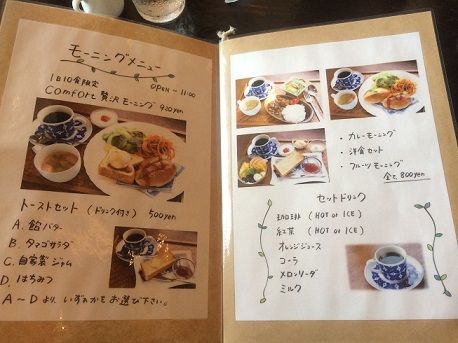 モーニングメニュー
OPEN - 11:00
1日10食限定
comfort 贅沢モーニング 920yen
トーストセット (ドリンク付き) 500yen
A. 餡バター
B. タマゴサラダ
C. 自家製ジャム
D. はちみつ
A〜Dより、いずれかをお選び下さい。
・カレーモーニング
・洋食セット
・フルーツモーニング
全て 800yen
セットドリンク
珈琲 (HOT or ICE)
紅茶 (HOT or ICE)
オレンジジュース
コーラ
メロンソーダ
ミルク